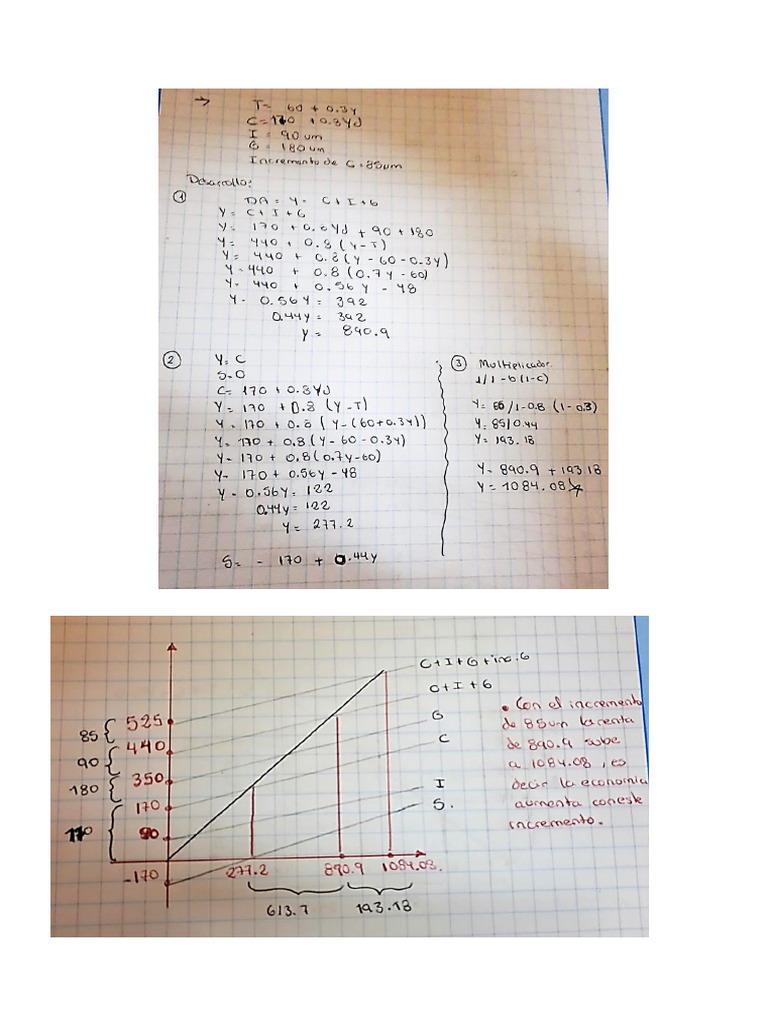 → T= 60 + 0.3y
C=170 +0.8Yd
I = 90 um
G = 180 um
Incremento de G=85um
Desarrollo:
① DA = Y = C+I+G
Y= C+I+G
Y= 170 +0.8Yd + 90 +180
Y= 440 + 0.8 (Y-T)
Y= 440 + 0.8(Y-60-0.3Y)
Y=440 + 0.8(0.7Y-60)
Y= 440 + 0.56Y - 48
Y- 0.56Y= 392
0.44Y= 392
Y= 890.9
② Y=C
S=0
C= 170 +0.8Yd
Y= 170 +0.8 (Y-T)
Y= 170 +0.8 (Y-(60+0.3Y))
Y= 170 +0.8(Y-60-0.3Y)
Y= 170 +0.8(0.7Y-60)
Y= 170 +0.56Y-48
Y- 0.56Y= 122
0.44Y=122
Y= 277.2
S= - 170 + 0.44Y
③ Multiplicador.
1/1-b(1-c)
Y= 85/1-0.8 (1-0.3)
Y= 85/0.44
Y= 193.18
Y= 890.9 +193.18
Y= 1084.08
C+I+G+inc.G
C+I+G
G
C
I
S.
85
90
180
170
525
440
350
170
90
-170
277.2 890.9 1084.08.
613.7 193.18
• Con el incremento
de 85um la renta
de 890.9 sube
a 1084.08, es
decir la economia
aumenta con este
incremento.